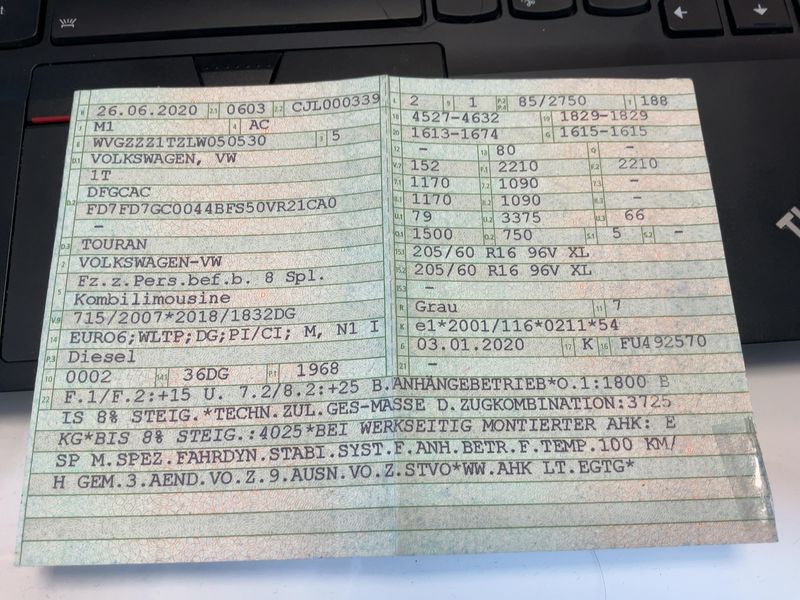 B 26.06.2020 2.1 0603 2.2 CJL000339
J M1 4 AC
E WVGZZZ1TZLW050530 3 5
D.1 VOLKSWAGEN, VW
1T
DFGCAC
D.2 FD7FD7GC0044BFS50VR21CA0
–
D.3 TOURAN
2 VOLKSWAGEN-VW
Fz.z.Pers.bef.b. 8 Spl.
5 Kombilimousine
V.9 715/2007*2018/1832DG
14 EURO6;WLTP;DG;PI/CI; M, N1 I
P.3 Diesel
10 0002 14.1 36DG P.1 1968
L 2 9 1 P.2 P.4 85/2750 T 188
18 4527-4632 19 1829-1829
20 1613-1674 G 1615-1615
12 – 13 80 Q –
V.7 152 F.1 2210 F.2 2210
7.1 1170 7.2 1090 7.3 –
8.1 1170 8.2 1090 8.3 –
U.1 79 U.2 3375 U.3 66
O.1 1500 O.2 750 S.1 5 S.2 –
15.1 205/60 R16 96V XL
15.2 205/60 R16 96V XL
15.3 –
R Grau 11 7
K e1*2001/116*0211*54
6 03.01.2020 17 K 16 FU492570
21 –
22 F.1/F.2:+15 U. 7.2/8.2:+25 B.ANHÄNGEBETRIEB*O.1:1800 B
IS 8% STEIG.*TECHN.ZUL.GES-MASSE D.ZUGKOMBINATION:3725
KG*BIS 8% STEIG.:4025*BEI WERKSEITIG MONTIERTER AHK: E
SP M.SPEZ.FAHRDYN.STABI.SYST.F.ANH.BETR.F.TEMP.100 KM/
H GEM.3.AEND.VO.Z.9.AUSN.VO.Z.STVO*WW.AHK LT.EGTG*